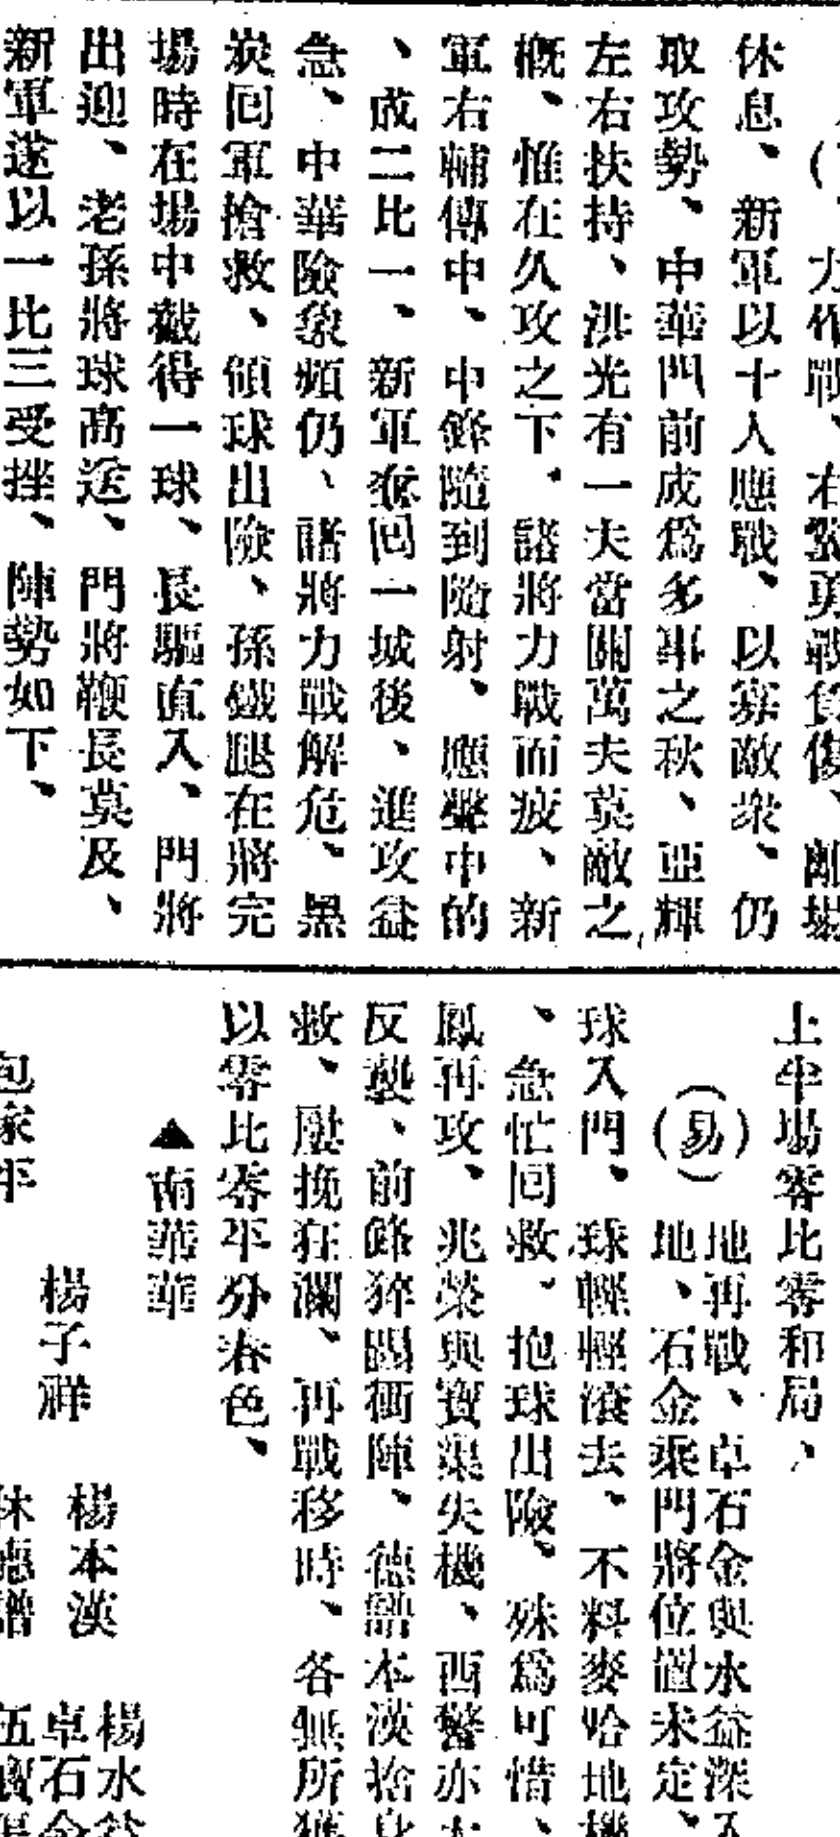 力作戰、右翼勇戰負傷、離場
休息、新軍以十人應戰、以寡敵衆、仍
取攻勢、中華門前成爲多事之秋、亞輝
左右扶持、洪光有一夫當關萬夫莫敵之
概、惟在久攻之下、諸將力戰而疲、新
軍右輔傳中、中鋒隨到隨射、應聲中的
、成二比一、新軍奪回一城後、進攻益
急、中華險象頻仍、諸將力戰解危、黑
炭回軍搶救、頓球出險、孫鐵腿在將完
場時在場中截得一球、長驅直入、門將
出迎、老孫將球高送、門將鞭長莫及、
新軍遂以一比三受挫、陣勢如下、
上半塲零比零和局、
(易)地再戰、卓石金與水益深入
地、石金乘門將位置未定、
球入門、球輕輕滾去、不料麥哈地機
、急忙回救、抱球出險、殊爲可惜、
鳳再攻、兆榮與寶渠失機、西警亦大
反襲、前鋒猝關衝陣、德譜本漢捨身
救、壓挽狂瀾、再戰移時、各無所獲
以零比零平分春色、
▲南華華
楊水益
楊本漢 卓石金
楊子祥 林德譜 伍寶渠
包家平